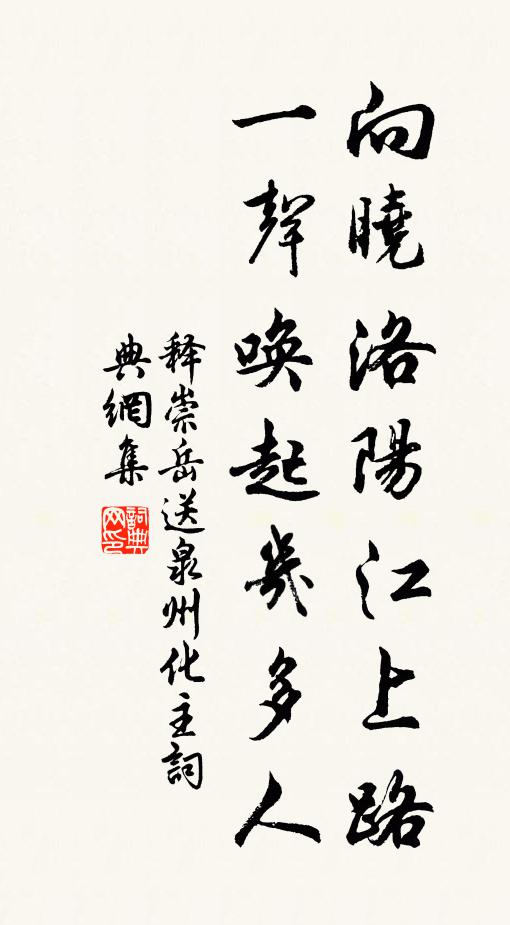 向曉洛陽江上路
一聲喚起幾多人
釋崇岳送泉州化主詞
典網集
詞典
网印